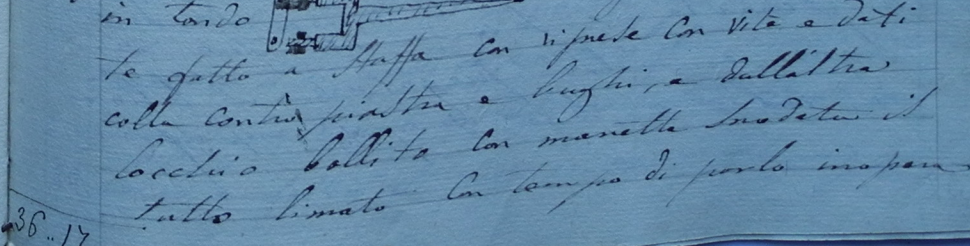 in tondo
te fatto a staffa con riprese con vite e dati
colla contro piastra e bughi, e dall'altra
locchio bollito con manetta snodata il
tutto limato con tempo di porlo inopera
36..17